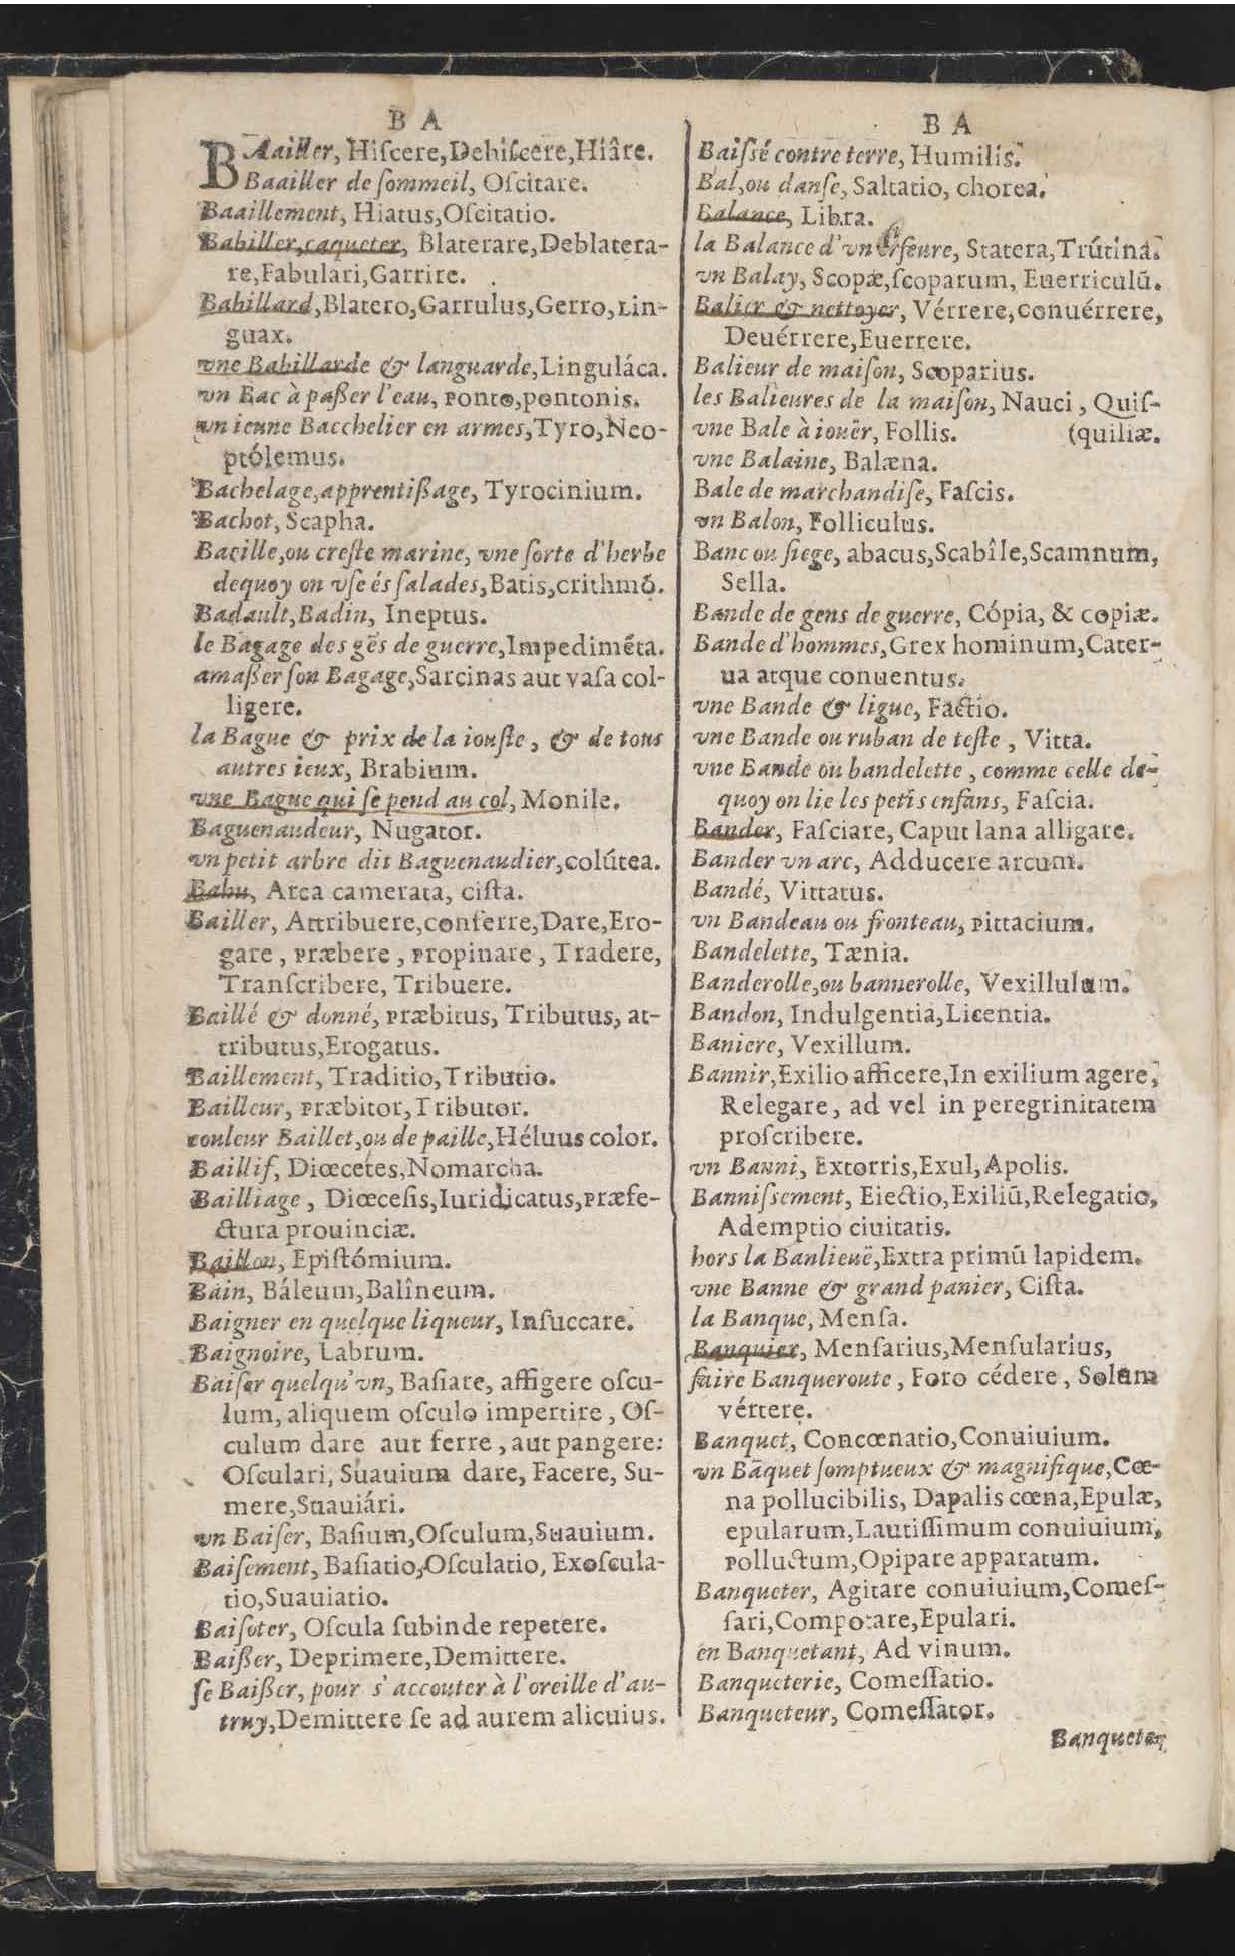 B A
BAailler, Hiſcere,Dehiſcere,Hiâre.
Baailler de ſommeil, Oſcitare.
Baaillement, Hiatus,Oſcitatio.
Babiller,caqueter, Blaterare,Deblatera-
re,Fabulari,Garrire.
Babillard,Blatero,Garrulus,Gerro,Lin-
guax.
vne Babillarde & languarde,Linguláca.
vn Bac à paßer l'eau, Ponto,pontonis.
vn ieune Bacchelier en armes,Tyro,Neo-
ptólemus.
Bachelage,apprentißage, Tyrocinium.
Bachot, Scapha.
Bacille,ou creſte marine, vne ſorte d'herbe
dequoy on vſe és ſalades,Batis,crithmō.
Badault,Badin, Ineptus.
le Bagage des gēs de guerre,Impedimēta.
amaßer ſon Bagage,Sarcinas aut vaſa col-
ligere.
la Bague & prix de la iouſte, & de tous
autres ieux, Brabium.
vne Bague qui ſe pend au col, Monile.
Baguenaudeur, Nugator.
vn petit arbre dit Baguenaudier,colútea.
Bahu, Arca camerata, ciſta.
Bailler, Attribuere,conferre,Dare,Ero-
gare, Præbere, Propinare, Tradere,
Tranſcribere, Tribuere.
Baillé & donné, Præbitus, Tributus, at-
tributus,Erogatus.
Baillement, Traditio,Tributio.
Bailleur, Præbitor,Tributor.
couleur Baillet,ou de paille,Héluus color.
Baillif, Diœcetes,Nomarcha.
Bailliage, Diœceſis,Iuridicatus,Præfe-
ctura prouinciæ.
Baillon, Epiſtómium.
Bain, Báleum,Balîneum.
Baigner en quelque liqueur, Inſuccare.
Baignoire, Labrum.
Baiſer quelqu'vn, Baſiare, affigere oſcu-
lum, aliquem oſculo impertire, Oſ-
culum dare aut ferre, aut pangere:
Oſculari, Suauium dare, Facere, Su-
mere,Suauiári.
vn Baiſer, Baſium,Oſculum,Suauium.
Baiſement, Baſiatio,Oſculatio, Exoſcula-
tio,Suauiatio.
Baiſoter, Oſcula ſubinde repetere.
Baißer, Deprimere,Demittere.
ſe Baißer, pour s'accouter à l'oreille d'au-
truy,Demittere ſe ad aurem alicuius.
B A
Baiſsé contre terre, Humilis.
Bal,ou danſe, Saltatio, chorea.
Balance, Libra.
la Balance d'vn Orfeure, Statera,Trútina.
vn Balay, Scopæ,ſcoparum, Euerriculū.
Balier & nettoyer, Vérrere,conuérrere,
Deuérrere,Euerrere.
Balieur de maiſon, Scoparius.
les Balieures de la maiſon, Nauci, Quiſ-
vne Bale à iouër, Follis. (quiliæ.
vne Balaine, Balæna.
Bale de marchandiſe, Faſcis.
vn Balon, Folliculus.
Banc ou ſiege, abacus,Scabîle,Scamnum,
Sella.
Bande de gens de guerre, Cópia, & copiæ.
Bande d'hommes,Grex hominum,Cater-
ua atque conuentus.
vne Bande & ligue, Factio.
vne Bande ou ruban de teſte, Vitta.
vne Bande ou bandelette, comme celle de-
quoy on lie les petis enfans, Faſcia.
Bander, Faſciare, Caput lana alligare.
Bander vn arc, Adducere arcum.
Bandé, Vittatus.
vn Bandeau ou fronteau, Pittacium.
Bandelette, Tænia.
Banderolle,ou bannerolle, Vexillulum.
Bandon, Indulgentia,Licentia.
Baniere, Vexillum.
Bannir,Exilio afficere,In exilium agere,
Relegare, ad vel in peregrinitatem
proſcribere.
vn Banni, Extorris,Exul,Apolis.
Banniſsement, Eiectio,Exiliū,Relegatio,
Ademptio ciuitatis.
hors la Banlieuë,Extra primū lapidem.
vne Banne & grand panier, Ciſta.
la Banque, Menſa.
Banquier, Menſarius,Menſularius,
faire Banqueroute, Foro cédere, Solum
vértere.
Banquet, Concœnatio,Conuiuium.
vn Bāquet ſomptueux & magnifique,Cœ-
na pollucibilis, Dapalis cœna,Epulæ,
epularum,Lautiſſimum conuiuium,
Polluctum,Opipare apparatum.
Banqueter, Agitare conuiuium,Comeſ-
ſari,Compotare,Epulari.
en Banquetant, Ad vinum.
Banqueterie, Comeſſatio.
Banqueteur, Comeſſator.
Banqueter